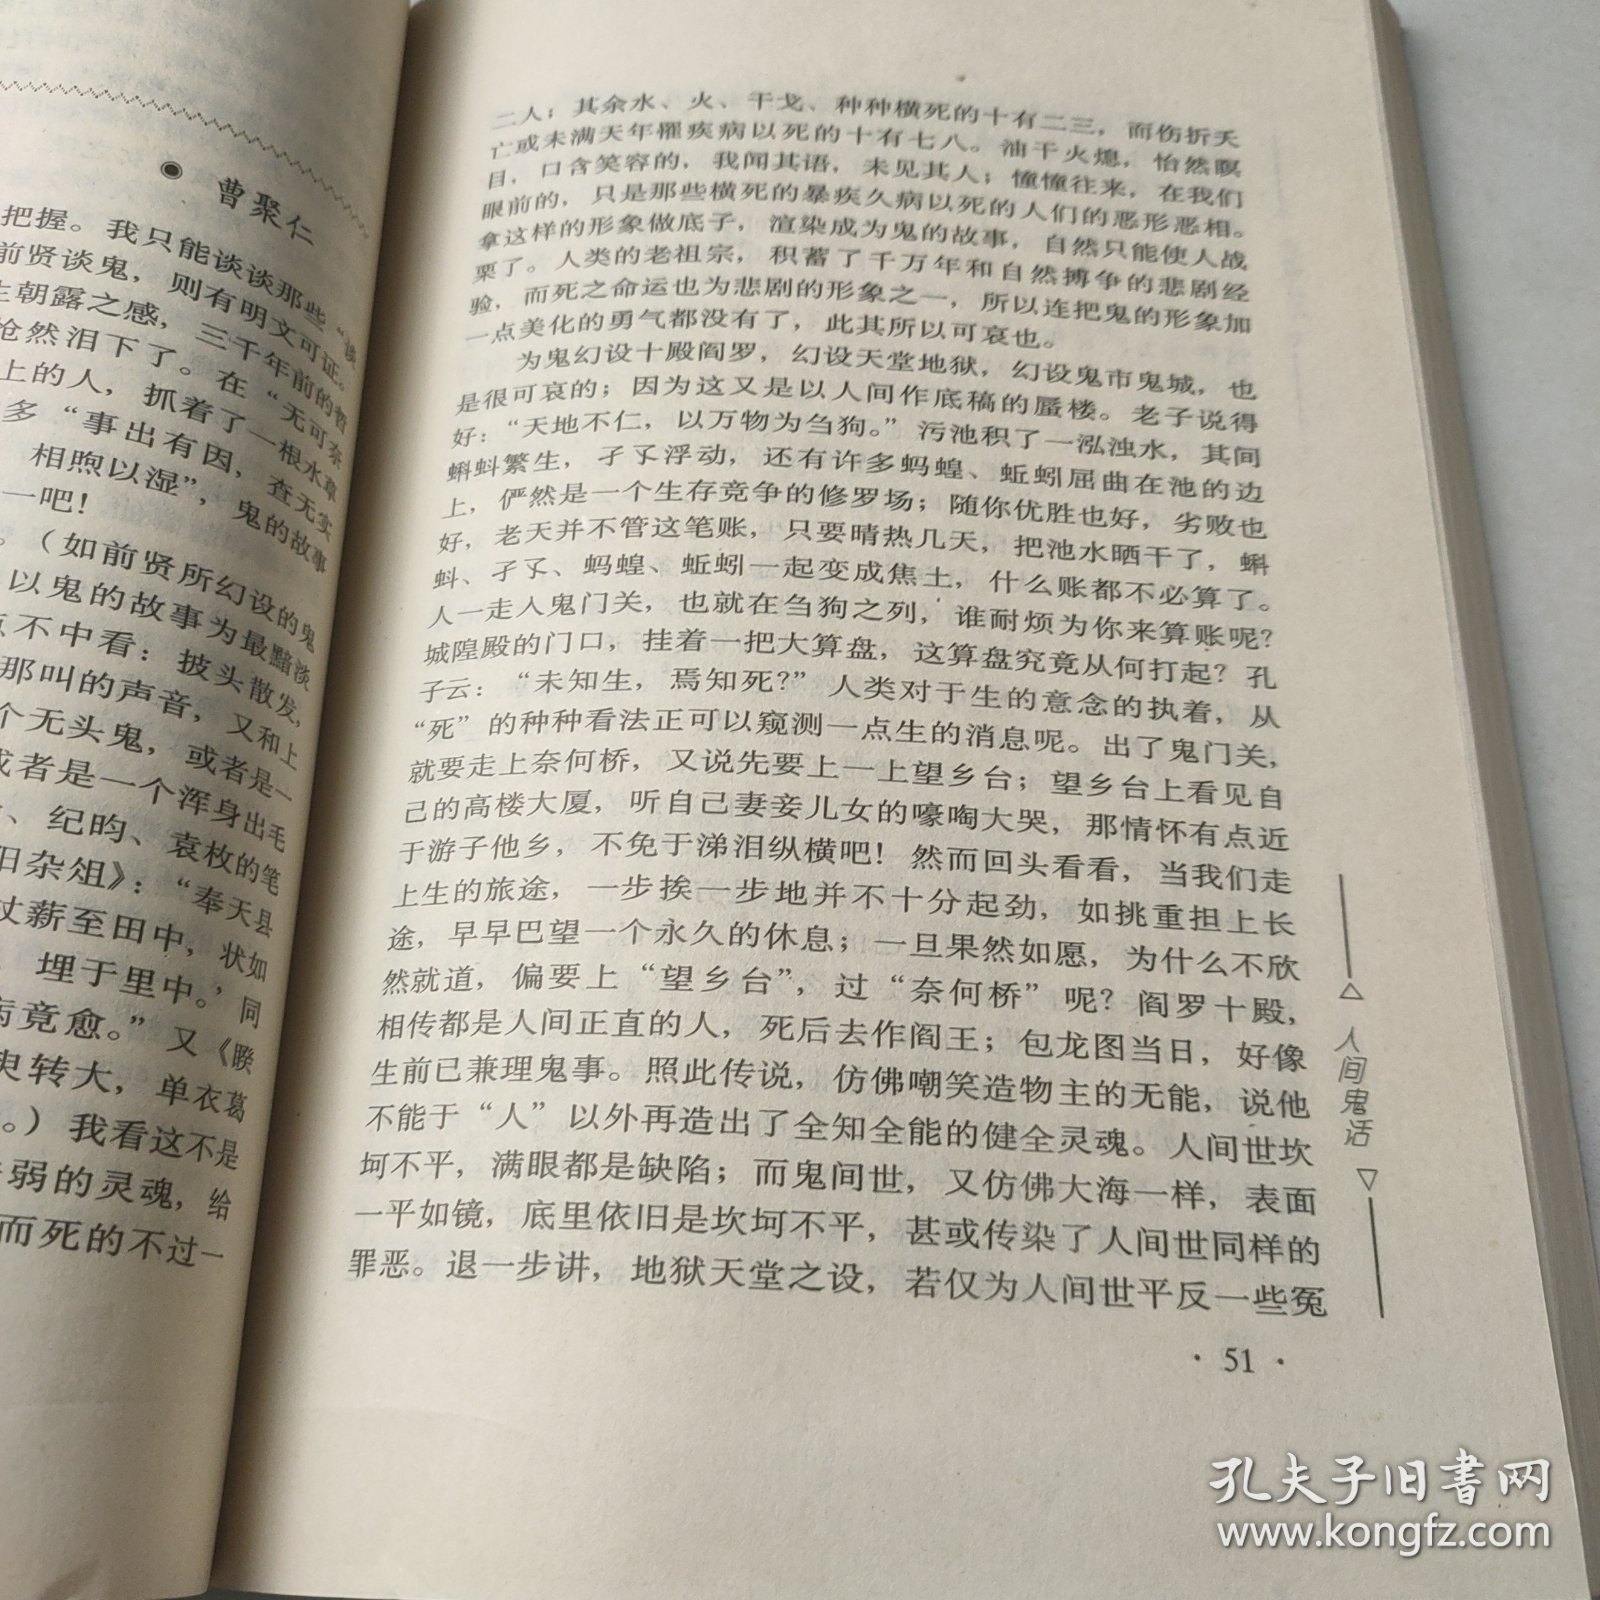 曹聚仁
把握。我只能谈谈那些“谈
前贤谈鬼，则有明文可证。
生朝露之感，三千年前的哲
怆然泪下了。在“无可奈
上的人，抓着了一根水草
多“事出有因，查无实
相煦以湿”，鬼的故事
一吧！
。（如前贤所幻设的鬼
以鬼的故事为最黯淡
点不中看：披头散发，
那叫的声音，又和上
个无头鬼，或者是一
或者是一个浑身出毛
、纪昀、袁枚的笔
阳杂俎》：“奉天县
薪至田中，状如
埋于里中。’同
病竟愈。”又《睽
臾转大，单衣葛
。）我看这不是
弱的灵魂，给
而死的不过一
二人；其余水、火、干戈、种种横死的十有二三，而伤折夭
亡或未满天年罹疾病以死的十有七八。油干火熄，怡然瞑
目，口含笑容的，我闻其语，未见其人；憧憧往来，在我们
眼前的，只是那些横死的暴疾久病以死的人们的恶形恶相。
拿这样的形象做底子，渲染成为鬼的故事，自然只能使人战
栗了。人类的老祖宗，积蓄了千万年和自然搏争的悲剧经
验，而死之命运也为悲剧的形象之一，所以连把鬼的形象加
一点美化的勇气都没有了，此其所以可哀也。
为鬼幻设十殿阎罗，幻设天堂地狱，幻设鬼市鬼城，也
是很可哀的；因为这又是以人间作底稿的蜃楼。老子说得
好：“天地不仁，以万物为刍狗。”污池积了一泓浊水，其间
蝌蚪繁生，孑孓浮动，还有许多蚂蝗、蚯蚓屈曲在池的边
上，俨然是一个生存竞争的修罗场；随你优胜也好，劣败也
好，老天并不管这笔账，只要晴热几天，把池水晒干了，蝌
蚪、孑孓、蚂蝗、蚯蚓一起变成焦土，什么账都不必算了。
人一走人鬼门关，也就在刍狗之列，谁耐烦为你来算账呢？
城隍殿的门口，挂着一把大算盘，这算盘究竟从何打起？孔
子云：“未知生，焉知死？”人类对于生的意念的执着，从
“死”的种种看法正可以窥测一点生的消息呢。出了鬼门关，
就要走上奈何桥，又说先要上一上望乡台；望乡台上看见自
己的高楼大厦，听自己妻妾儿女的嚎啕大哭，那情怀有点近
于游子他乡，不免于涕泪纵横吧！然而回头看看，当我们走
上生的旅途，一步挨一步地并不十分起劲，如挑重担上长
途，早早巴望一个永久的休息；一旦果然如愿，为什么不欣
然就道，偏要上“望乡台”，过“奈何桥”呢？阎罗十殿，
相传都是人间正直的人，死后去作阎王；包龙图当日，好像
生前已兼理鬼事。照此传说，仿佛嘲笑造物主的无能，说他
不能于“人”以外再造出了全知全能的健全灵魂。人间世坎
坷不平，满眼都是缺陷；而鬼间世，又仿佛大海一样，表面
一平如镜，底里依旧是坎坷不平，甚或传染了人间世同样的
罪恶。退一步讲，地狱天堂之设，若仅为人间世平反一些冤
人间鬼话
· 51 ·
孔夫子旧书网
www.kongfz.com